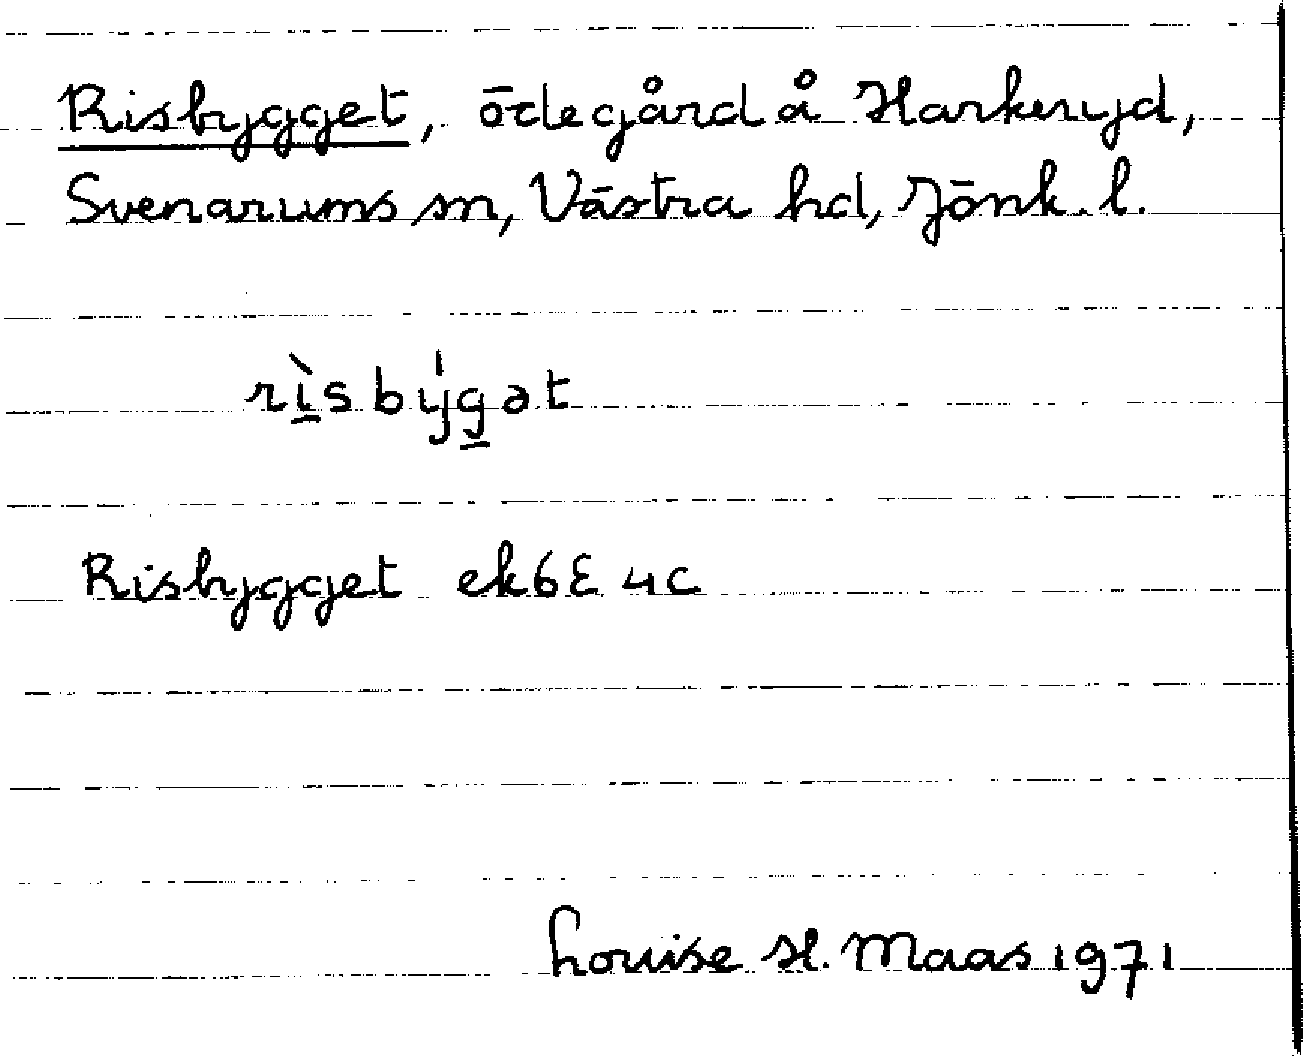 Risbygget, ödegård å Harkeryd,
Svenarums sn, Västra hd, Jönk. l.
rı̀sbýgət
Risbygget ek6E 4c
Louise H. Maas 1971